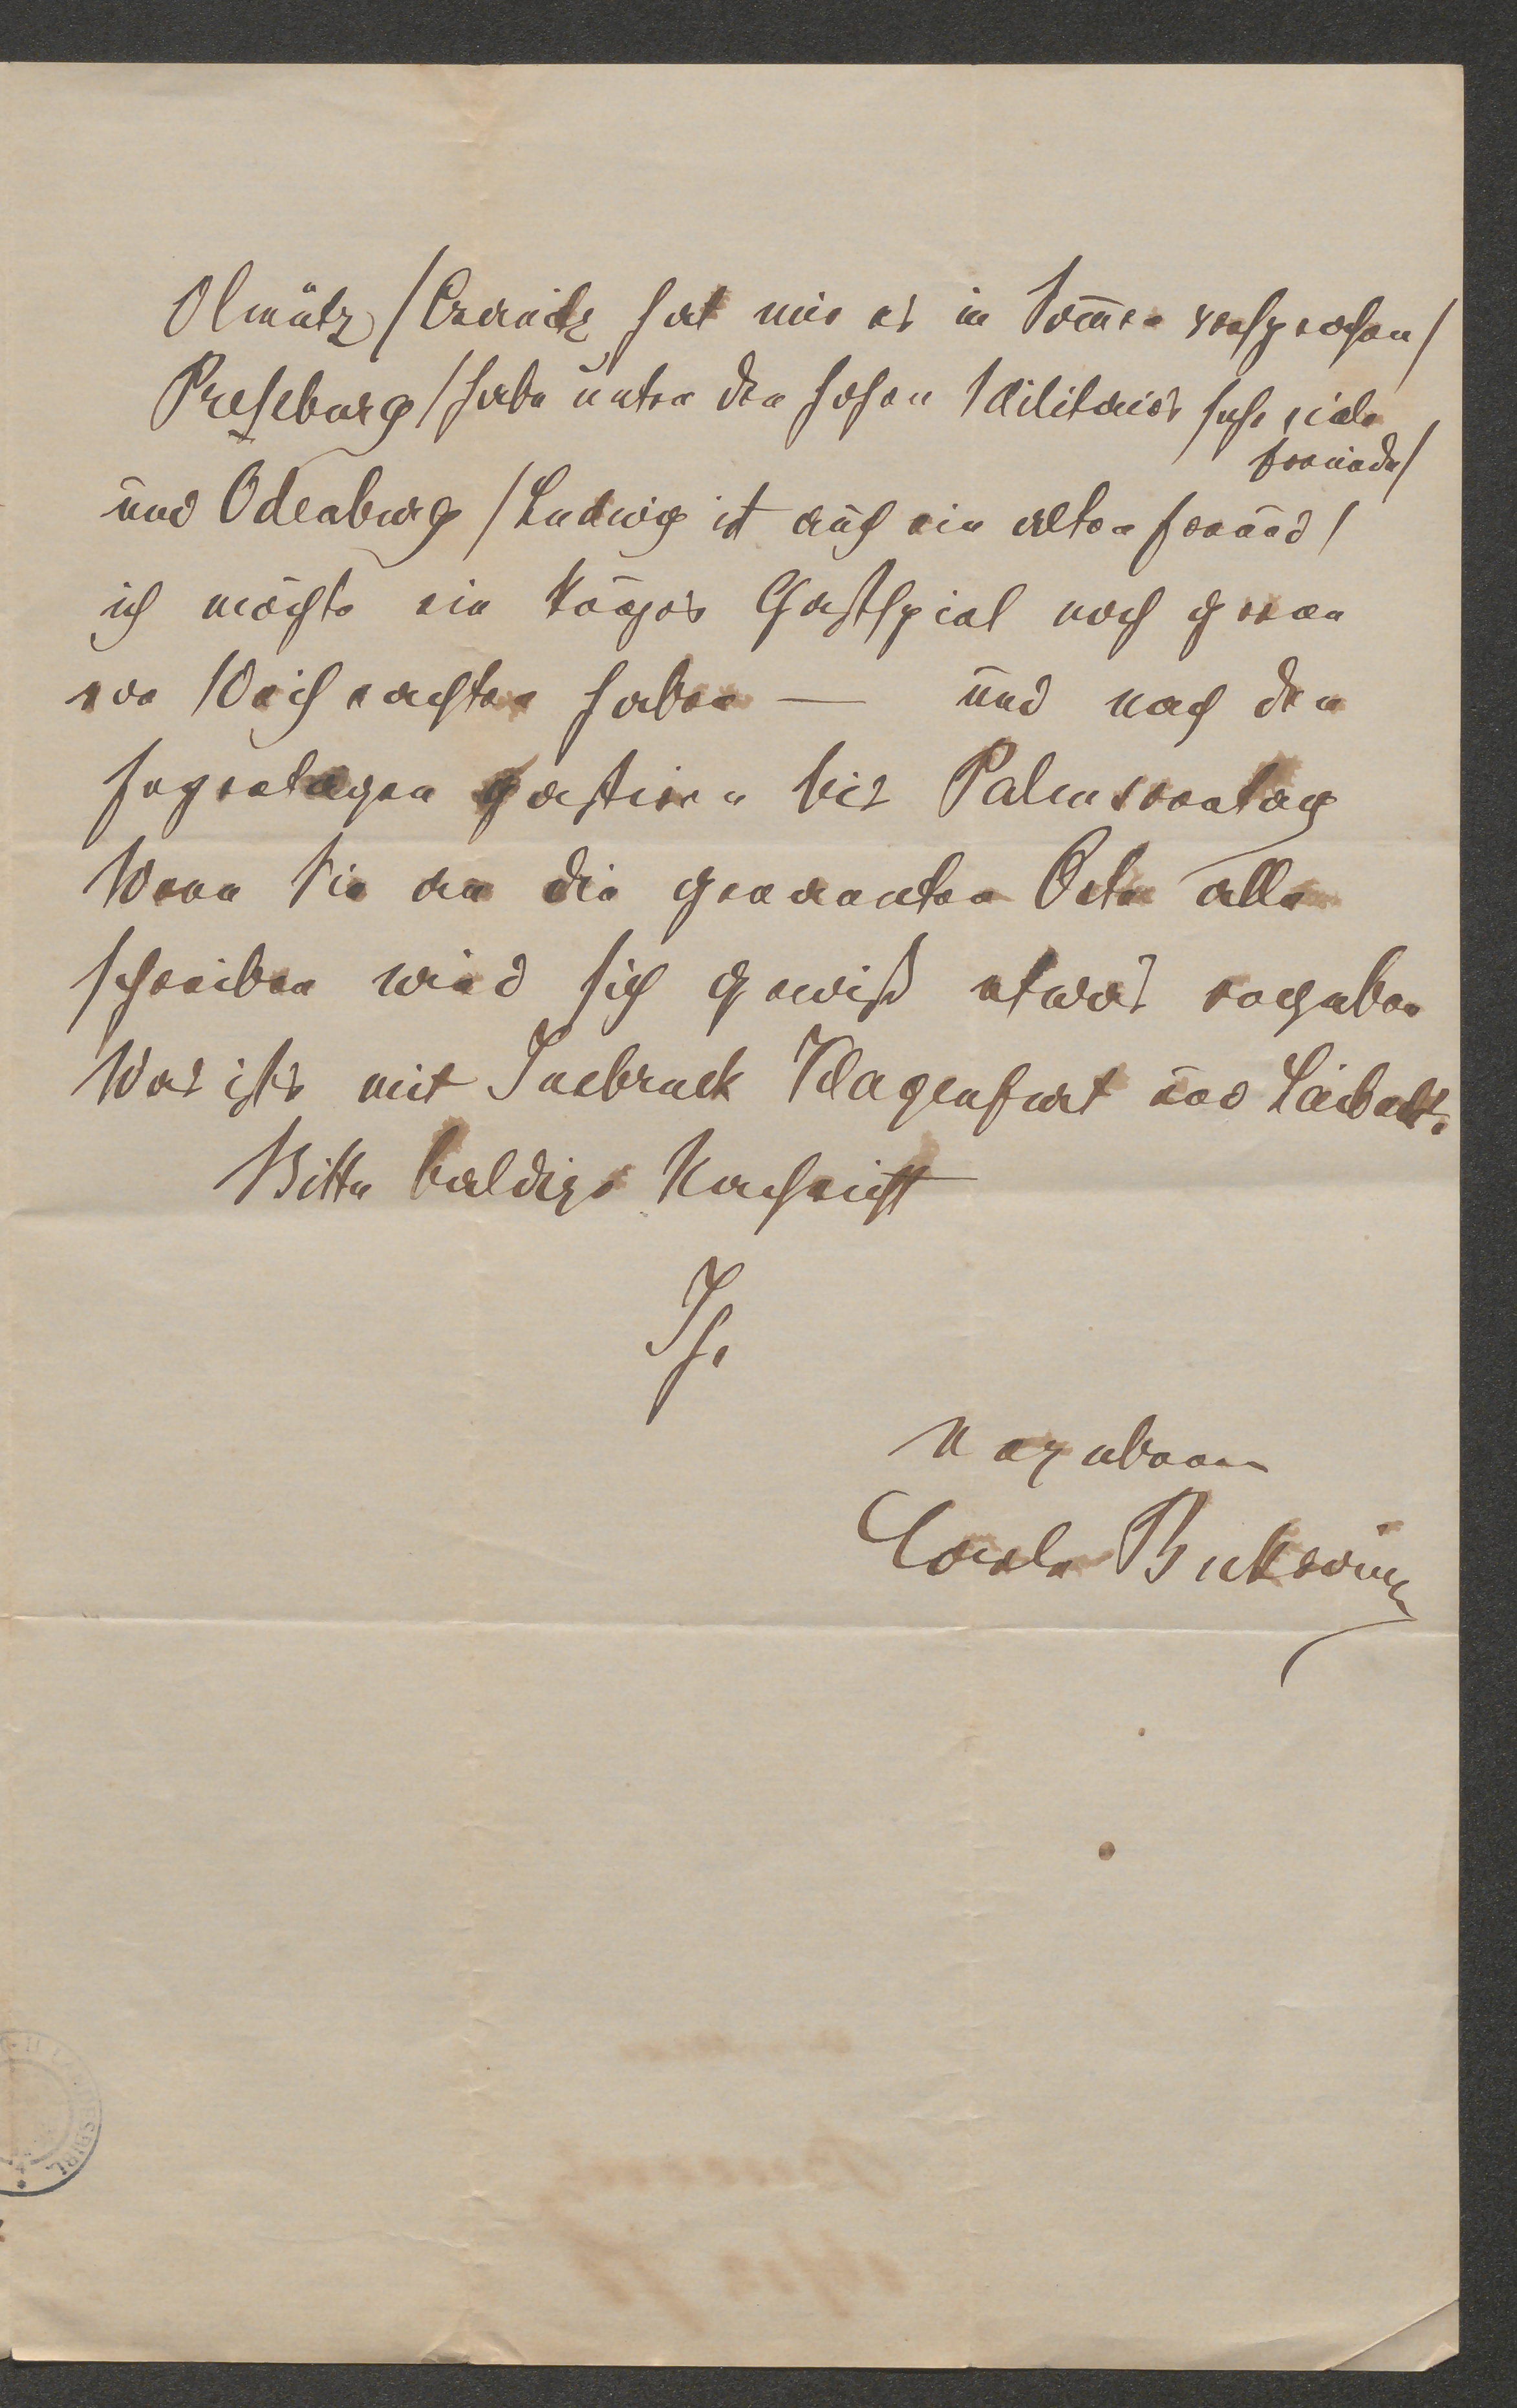 Olmütz /Czernitz hat mir es im Sommer versprochen/
Preßburg /habe unter den hohen Militairs sehr viele
Freunde/
und Ödenburg /Ludwig ist auch ein alter Freund/
ich möchte ein kurzes Gastspiel noch gern
vor Weihnachten haben — und nach den
Feyertagen gastiren bis Palmsonntag
Wenn Sie an die genannten Orte alle
schreiben wird sich gewiß etwas ergeben
Was ists mit Insbruck Klagenfurt und Laibach.
Bitte baldige Nachricht
Ihr
ergebener